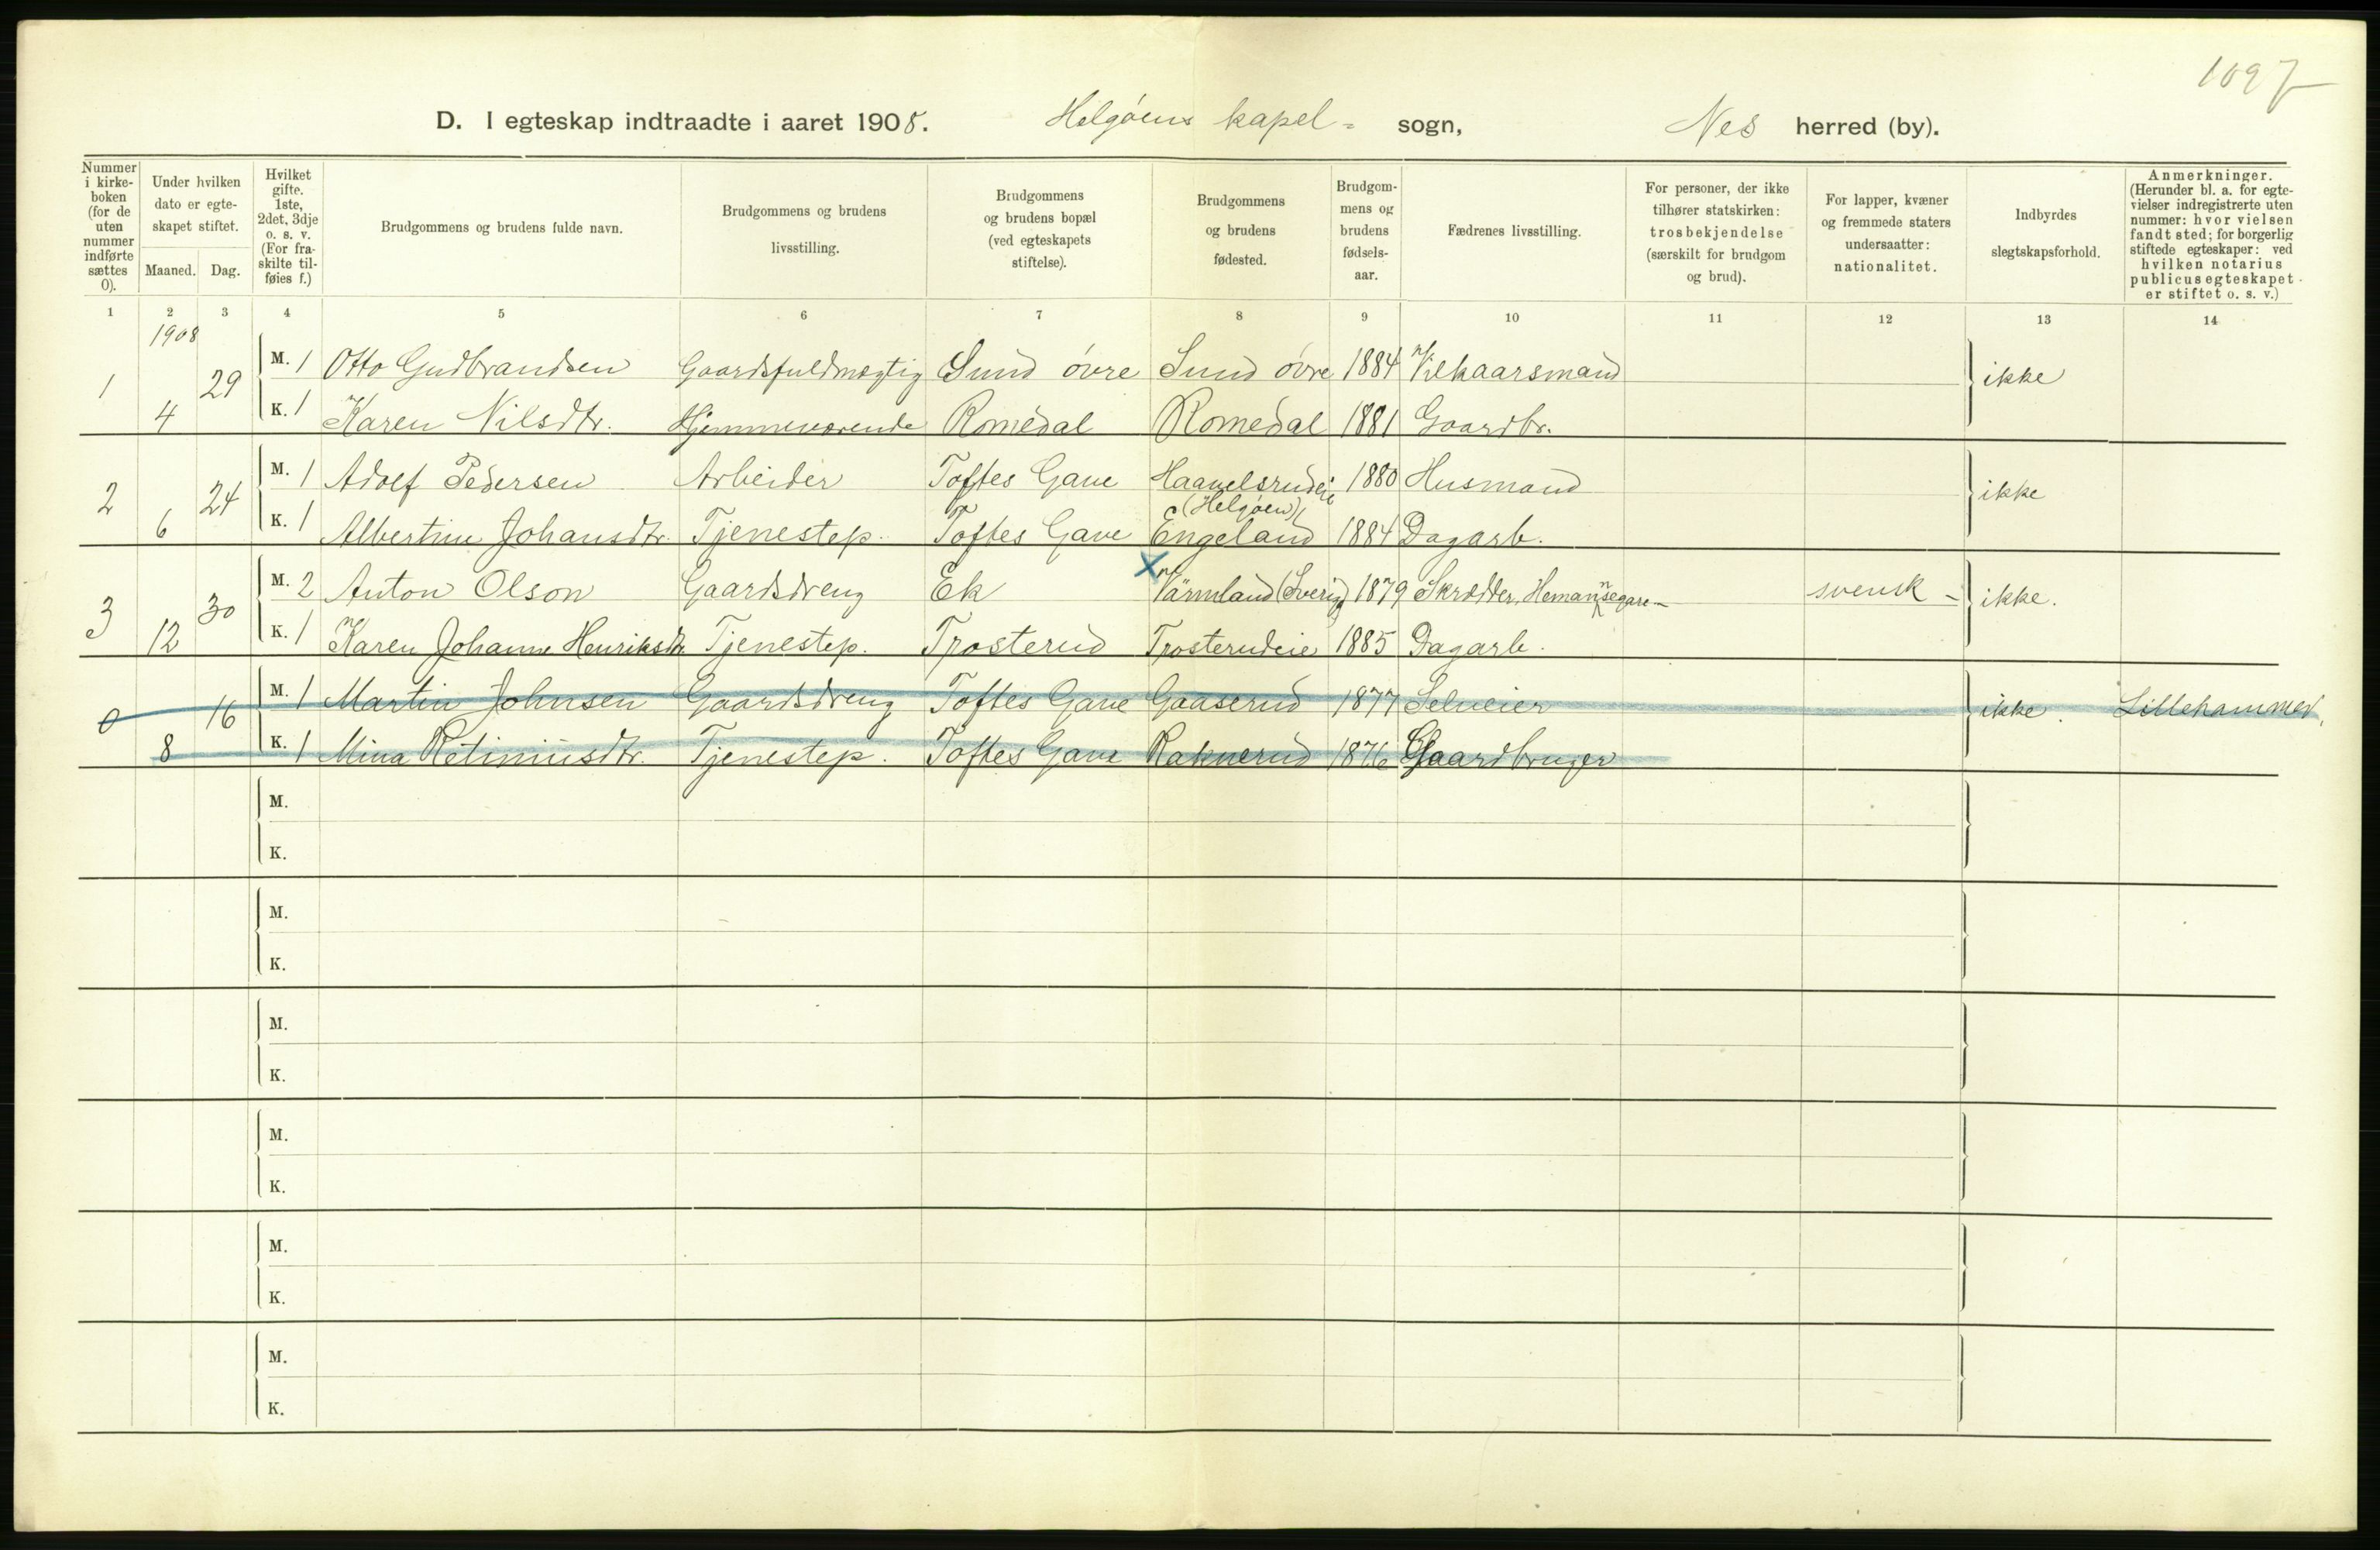 1097
D. I egteskap indtraadte i aaret 1908. Helgøens kapel- sogn, Nes herred (by).
Nummer i kirke-boken (for de uten nummer indførte sættes 0).
Under hvilken dato er egte-skapet stiftet.
Maaned. Dag.
Hvilket gifte. 1ste, 2det, 3dje o. s. v. (For fra-skilte til-føies f.)
Brudgommens og brudens fulde navn.
Brudgommens og brudens livsstilling.
Brudgommens og brudens bopæl (ved egteskapets stiftelse).
Brudgommens og brudens fødested.
Brudgom-mens og brudens fødsels-aar.
Fædrenes livsstilling.
For personer, der ikke tilhører statskirken: trosbekjendelse (særskilt for brudgom og brud).
For lapper, kvæner og fremmede staters undersaatter: nationalitet.
Indbyrdes slegtskapsforhold.
Anmerkninger. (Herunder bl. a. for egte-vielser indregistrerte uten nummer: hvor vielsen fandt sted; for borgerlig stiftede egteskaper: ved hvilken notarius publicus egteskapet er stiftet o. s. v.)
1 2 3 4 5 6 7 8 9 10 11 12 13 14
1908
1 29 M. 1 Otto Gudbrandsen Gaardsfuldmægtig Sund øvre Sund øvre 1884 Vilkaarsmand ikke
4 K. 1 Karen Nilsdtr. Hjemmeværende Romedal Romedal 1881 Gaardbr.
2 24 M. 1 Adolf Pedersen Arbeider Toftes Gave Haavelsrudeie 1880 Husmand ikke
(Helgøen)
6 K. 1 Albertine Johansdtr. Tjenestep. Toftes Gave Engeland 1884 Dagarb.
3 30 M. 2 Anton Olson Gaardsdreng Ek Värmland (Sverig) 1879 Skrædder, Hemansegare svensk - ikke.
n
12 K. 1 Karen Johanne Henriksdtr Tjenestep. Trosterud Trosterudeie 1885 Dagarb.
0 16 M. 1 Martin Johnsen Gaardsdreng Toftes Gave Gaaserud 1877 Selveier ikke. Lillehammer.
8 K. 1 Mina Tjenestep. Toftes Gave 1876 Gaardbruger
M.
K.
M.
K.
M.
K.
M.
K.
M.
K.
M.
K.